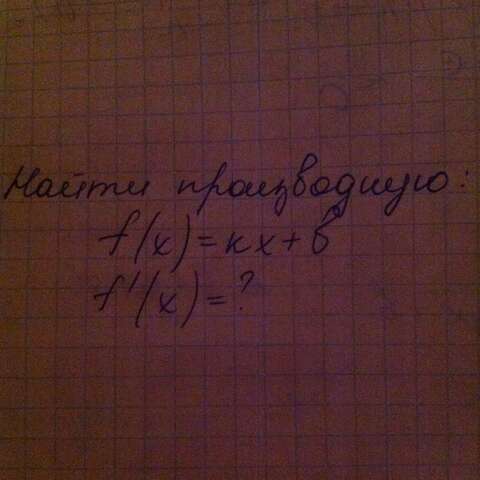 Найти производную:
f(x)=кх+в
f'(x)=?